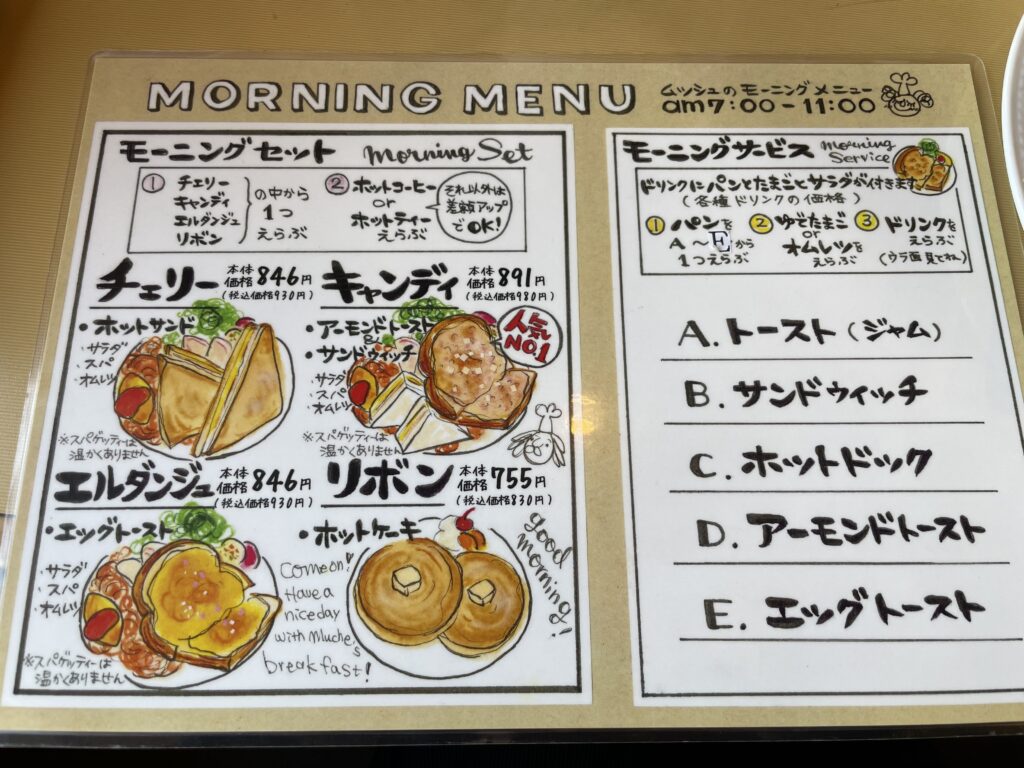 MORNING MENU
ムッシュのモーニングメニュー
am7:00-11:00
モーニングセット Morning Set
① チェリー
キャンディ
エルダンジュ
リボン
の中から
1つ
えらぶ
② ホットコーヒー
or
ホットティー
えらぶ
それ以外は
差額アップ
でOK!
チェリー 本体価格846円
(税込価格930円)
・ホットサンド
・サラダ
・スパ
・オムレツ
※スパゲッティーは
温かくありません
キャンディ 本体価格891円
(税込価格980円)
・アーモンドトースト
&
・サンドウィッチ
・サラダ
・スパ
・オムレツ
人気
NO.1
※スパゲッティーは
温かくありません
エルダンジュ 本体価格846円
(税込価格930円)
・エッグトースト
・サラダ
・スパ
・オムレツ
※スパゲッティーは
温かくありません
リボン 本体価格755円
(税込価格830円)
・ホットケーキ
come on!
Have a
nice day
with Muche's
breakfast!
good
morning!
モーニングサービス Morning
Service
ドリンクにパンとたまごとサラダが付きます
(各種ドリンクの価格)
① パンを
A~Eから
1つえらぶ
② ゆでたまご
or
オムレツを
えらぶ
③ ドリンクを
えらぶ
(ウラ面見てネ)
A. トースト(ジャム)
B. サンドウィッチ
C. ホットドック
D. アーモンドトースト
E. エッグトースト